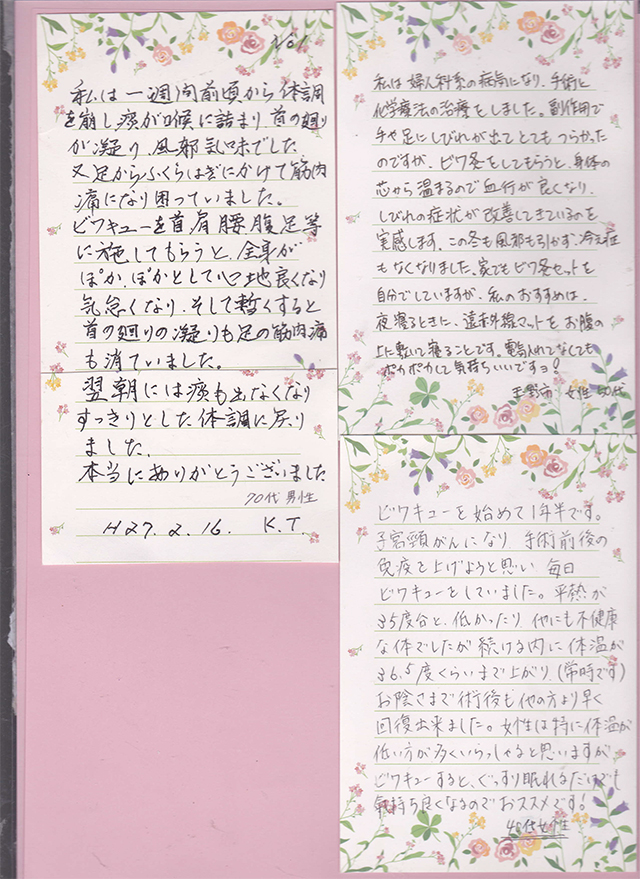 No1
私は一週間前頃から体調
を崩し痰が喉に詰まり首の廻り
が凝り、風邪気味でした
又足からふくらはぎにかけて筋肉
痛になり困っていました。
ビワキューを首肩腰腹足等
に施してもらうと、全身が
ぽか、ぽかとして心地良くなり
気怠くなり、そして暫くすると
首の廻りの凝りも足の筋肉痛
も消ていました。
翌朝には痰も出なくなり
すっきりとした体調に戻り
ました。
本当にありがとうございました
70代 男性
H27.2.16. K.T.
私は婦人科系の病気になり、手術と
化学療法の治療をしました。副作用で
手や足にしびれが出てとてもつらかった
のですが、ビワ灸をしてもらうと、身体の
芯から温まるので血行が良くなり、
しびれの症状が改善してきているのを
実感します。この冬も風邪も引かず、冷え症
もなくなりました。家でもビワ灸セットを
自分でしていますが、私のおすすめは、
夜寝るときに、遠赤外線マットをお腹の
上に敷いて寝ることです。電気入れてなくても
ポカポカして気持ちいいですョ!
女性 50代
ビワキューを始めて1年半です。
子宮頸がんになり 手術前後の
免疫を上げようと思い 毎日
ビワキューをしていました。平熱が
35度台と、低かったり、他にも不健康
な体でしたが続ける内に体温が
36.5度くらいまで上がり、(常時です)
お陰さまで術後も他の方より早く
回復出来ました。女性は特に体温が
低い方が多くいらっしゃると思いますが
ビワキューすると、ぐっすり眠れるだけでも
気持ち良くなるのでおススメです!
40代女性